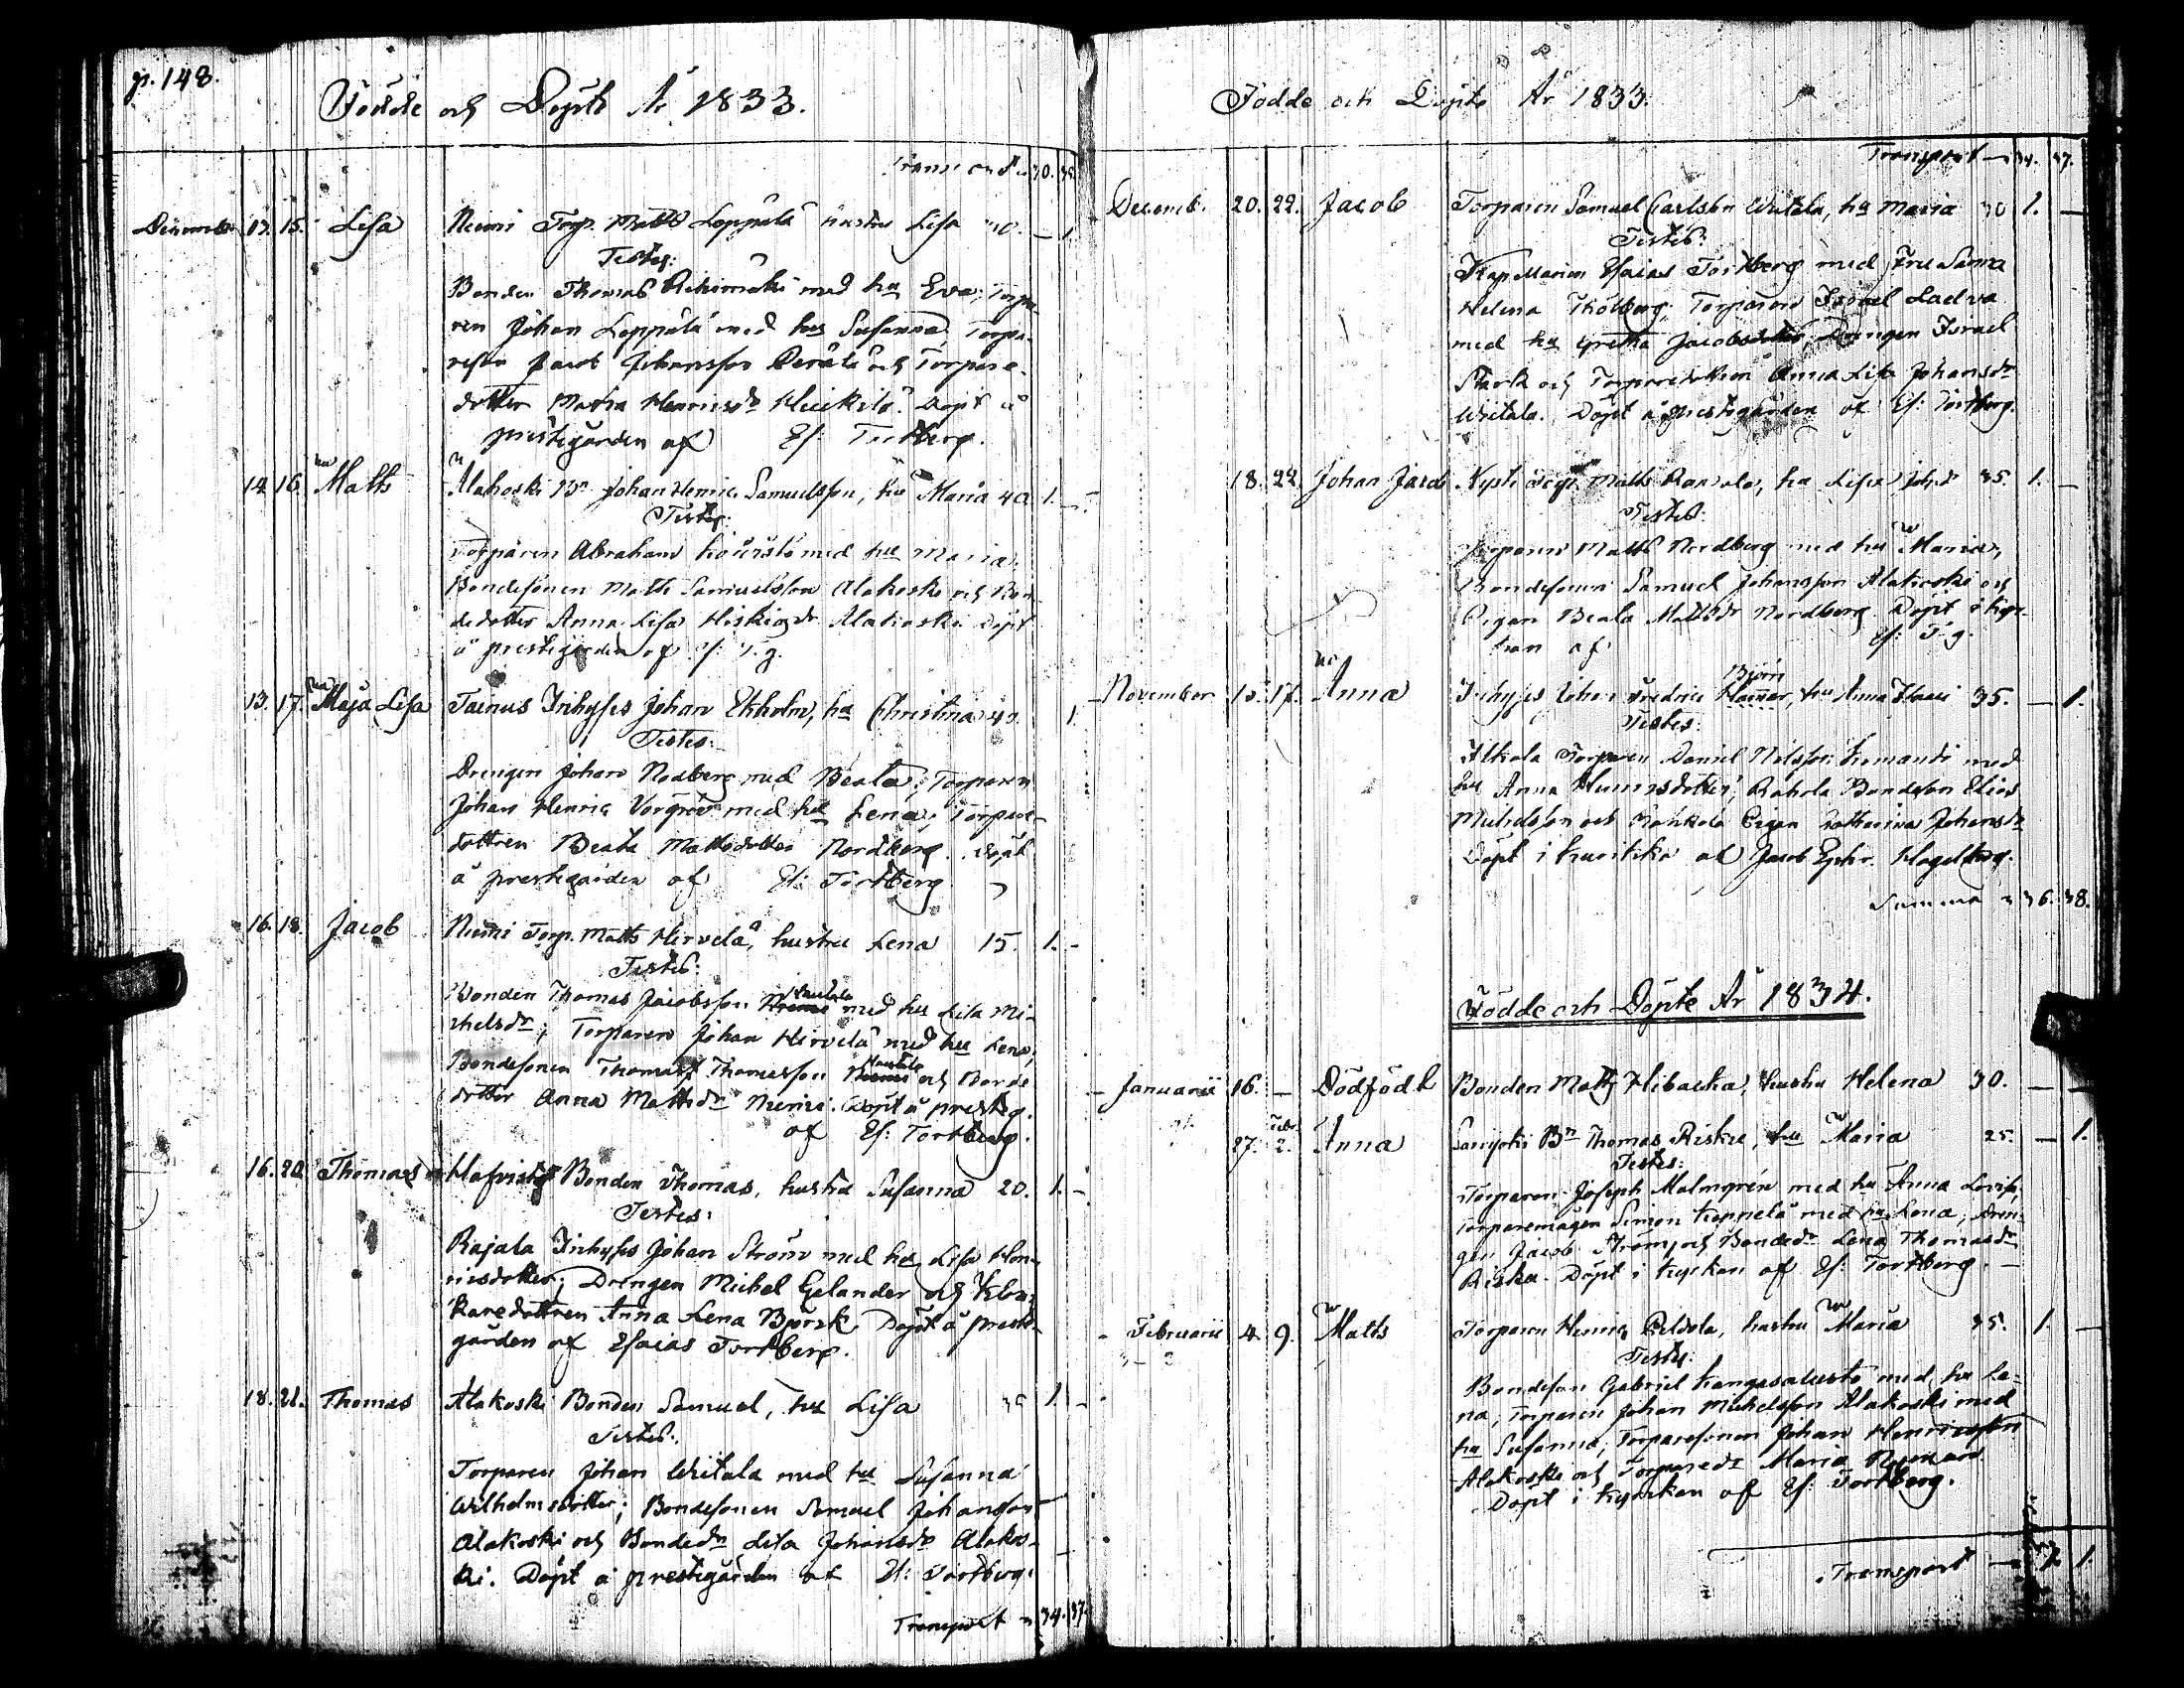 p. 148.
Födde och Döpte År 1833.
Decembr 13. 15. Lisa Niemi Torp. Matts Leppälä hustru Lisa 40. — 1.
Testes:
Bonden Thomas Riihimäki med hu Eva; Torpa-
ren Johan Leppälä med hu Susanna, Torpa-
Jacob Johansson Perälä och Torpare-
dotter Maria Henricsdr Heikilä. Döpt å
prestegården af Es: Tortberg.
14. 16. Matts Alakoski Bn Johan Henric Samuelsson, hu Maria 40 1. —
Testes:
Torparen Abraham med hu Maria,
Bondesonen Matts Samuelsson Alakoski och Bon-
dedotter Anna Lisa Hiskiasdr Alakoski Döpt
å prestegården af Es: T.g.
13. 17. Maja Lisa Tainus Inhyses Johan Ekholm, hu Christina 40. 1.
Testes:
Drengen Johan Nordberg med Beata; Torparen
Johan Henric Vorgren med hu Lena; Torpare-
dottren Beata Mattsdotter Nordberg. Döpt
å prestegården af Es: Tortberg
16. 18. Jacob Niemi Torp. Matts Hirvelä, hustru Lena 15. 1. -
Testes:
Bonden Thomas Jacobsson Niemi Hautala med hu Lisa Mi-
chelsdr; Torparen Johan Hirvelä med hu Lena;
Bondesonen Thomas Thomasson Niemi Hautala och Bonde
dotter Anna Mattsdr Niemi. Döpt å presteg.
af Es: Tortberg.
16. 20. Thomas Bonden Thomas, hustru Susanna 20. 1. -
Testes:
Rajala Inhyses Johan Ström med hu Lisa Hen-
ricsdotter; Drengen Michel Gelander och Kloc-
karedottren Anna Lena Björk Döpt å preste-
gården af Esaias Tortberg.
18. 21. Thomas Alakoski Bonden Samuel, hu Lisa 1. -
Testes:
Torparen Johan Writala med hu Susanna
Wilhelmsdotter; Bondesonen Samuel Johansson
Alakoski och Bondedr Lisa Johansdr Alakos-
ki. Döpt å prestegården af Es: Tortberg.
Transport 34. 37.
Födde och Döpte År 1833.
Transport 34. 37.
Decemb. 20. 22. Jacob Torparen Samuel Carlsson Writala, hu Maria 30 1. —
Testes:
Kapellanen Esaias Tortberg med Fru Sanna
Helena Torparen Israel Ladva
med hu Gretha Jacobsdotter, Drengen Israel
Stark och Torparedottren Anna Lisa Johansdr
Writala. Döpt å prestegården af Es: Tortberg.
18. 22. Johan Jacob Torp. Matts hu Lisa Johsdr 35. 1. —
Testes:
Torparen Matts Nordberg med hu Maria,
Bondesonen Samuel Johansson Alakoski och
Pigan Beata Mattsdr Nordberg. Döpt i Kyr-
kan af Es: T.g.
November 15. 17. Anna Inhyses Johan Fredric Hamar Björn, hu Anna 35. — 1.
Testes:
Torparen Daniel Nilsson med
hu Anna Henricsdotter, Rahola Bondeson Elias
Michelsson och Pigan Catharina Johansdr
Döpt i af Jacob Ephr. Hagelberg.
Summa 36. 38.
Födde och Döpte År 1834.
Januarii 16. — Dödfödt Bonden Matts Hibacka, hustru Helena 30. — —
27. Febr. 2. Anna Bn Thomas Riska, hu Maria 25. — 1.
Testes:
Torparen Joseph Malmgren med hu Anna Lovisa,
Torparemågen Simon Koppelä med hu Lena, Dren-
gen Jacob Ström och Bondedr Lena Thomasdr
Riska. Döpt i Kyrkan af Es: Tortberg. —
Februarii 4. 9. Matts Torparen Henric Peldola, hustru Maria 35. 1. —
Testes:
Bondeson Gabriel Kangasaluсta med hu Le-
na, Torparen Johan Michelsson Alakoski med
hu Susanna, Torparesonen Johan Henricsson
Alakoski och Torparedr Maria
Döpt i Kyrkan af Es: Tortberg.
Transport 1.